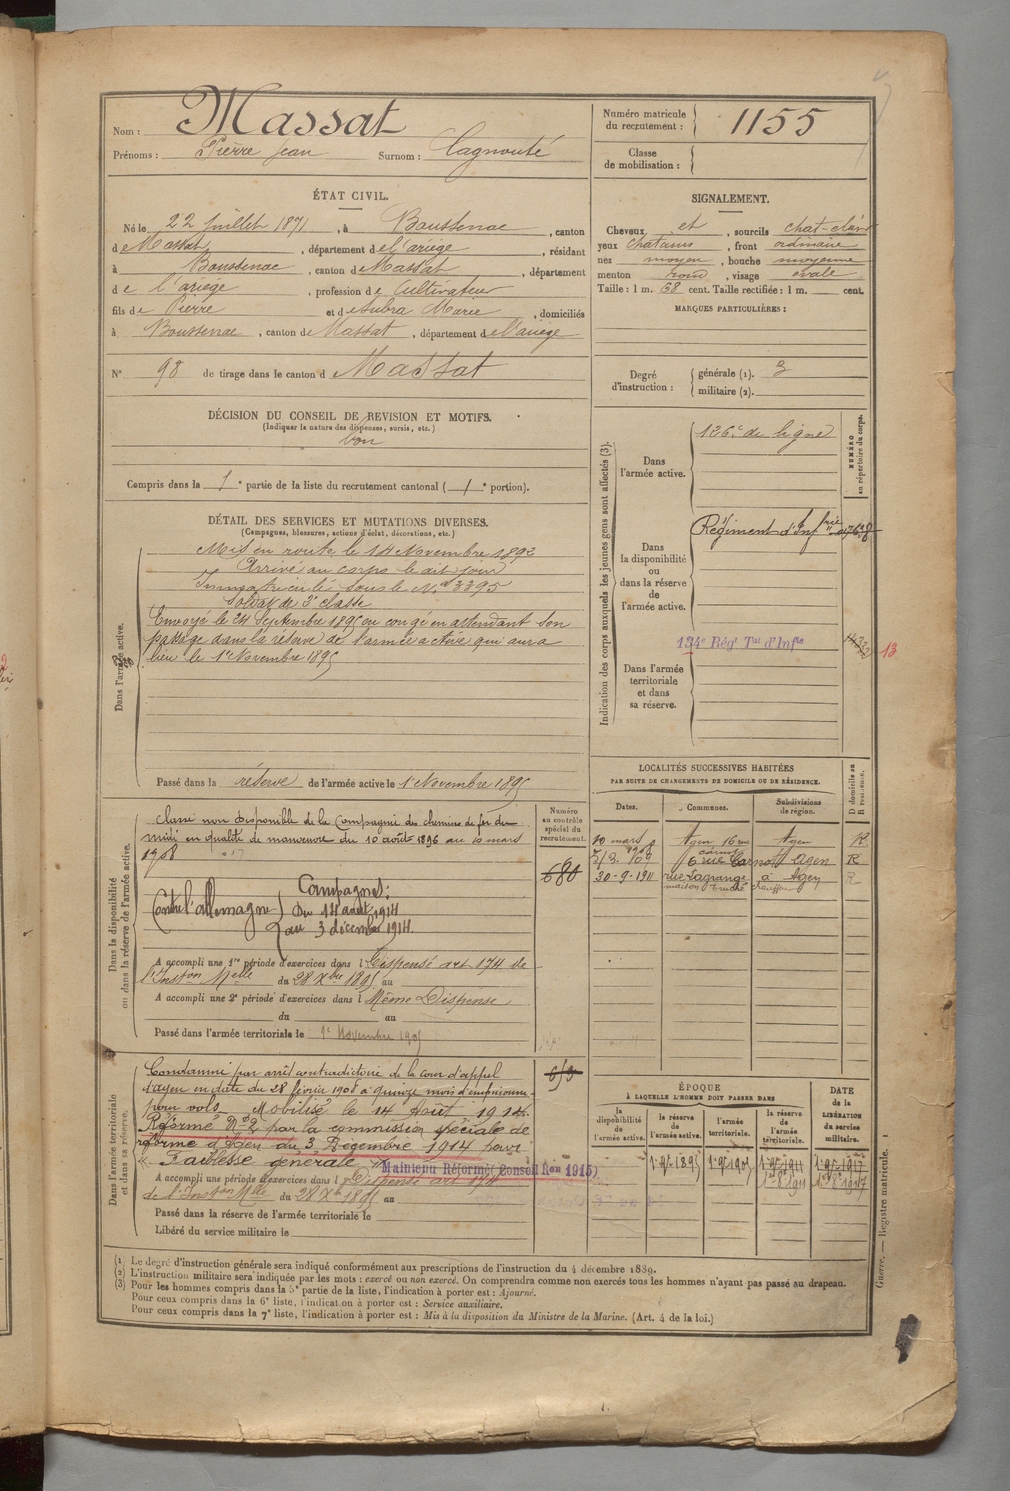 Nom : Massat
Prénoms : Pierre Jean Surnom : Cagnouté
ÉTAT CIVIL.
Né le 22 Juillet 1871, à Boussenac, canton
de Massat, département de l'ariège, résidant
à Boussenac, canton de Massat, département
de l'ariège, profession de Cultivateur
fils de Pierre et de Aubra Marie, domiciliés
à Boussenac, canton de Massat, département de l'ariège
N° 98 de tirage dans le canton d Massat
DÉCISION DU CONSEIL DE REVISION ET MOTIFS.
(Indiquer la nature des dispenses, sursis, etc.)
bon
Compris dans la 1e partie de la liste du recrutement cantonal (1e portion).
DÉTAIL DES SERVICES ET MUTATIONS DIVERSES.
(Campagnes, blessures, actions d'éclat, décorations, etc.)
Dans l'armée active.
Mis en route le 14 Novembre 1892
Arrivé au corps le dit jour
Immatriculé sous le N° 3395
Soldat de 2e classe
Envoyé le 24 Septembre 1895 en congé en attendant son
passage dans la réserve de l'armée active qui aura
lieu le 1er Novembre 1895
Passé dans la réserve de l'armée active le 1 Novembre 1895
Dans la disponibilité
ou dans la réserve de l'armée active.
Numéro
au contrôle
spécial du
recrutement.
680
classé non disponible de la Compagnie du chemins de fer du
midi en qualité de manœuvre du 10 août 1896 au 10 mars
1908
Campagnes :
Contre l'allemagne Du 14 août 1914
au 3 décembre 1914
A accompli une 1re période d'exercices dans l Dispensé art 174 de
l'Inston Melle du 28 Xbre 1895 au
A accompli une 2e période d'exercices dans l Même Dispense
du au
Passé dans l'armée territoriale le 1er Novembre 1905
Dans l'armée territoriale
et dans sa réserve.
Condamné par arrêt contradictoire de la cour d'appel
d'agen en date du 28 février 1908 à quinze mois d'emprisonne-
pour vols Mobilisé le 14 Août 1914.
Réformé N° 2 par la commission spéciale de
réforme d'Agen du 3 Décembre 1914 pour
« Faiblesse générale »
Maintenu Réformé (Conseil Ron 1915)
A accompli une période d'exercices dans l Dispensé art 174
de l'Inston Melle du 28 Xbre 1895 au
Passé dans la réserve de l'armée territoriale le
Libéré du service militaire le
Numéro matricule
du recrutement : 1155
Classe
de mobilisation :
SIGNALEMENT.
Cheveux et, sourcils chat-clairs
yeux chatains, front ordinaire
nez moyen, bouche moyenne
menton rond, visage ovale
Taille : 1 m. 68 cent. Taille rectifiée : 1 m. cent.
MARQUES PARTICULIÈRES :
Degré
d'instruction :
générale (1). 3
militaire (2).
Indication des corps auxquels les jeunes gens sont affectés (3).
NUMÉRO
au répertoire du corps.
Dans
l'armée active.
126e de ligne
Dans
la disponibilité
ou
dans la réserve
de
l'armée active.
Régiment d'Infrie
134e Régt Tal d'Infie
13
Dans l'armée
territoriale
et dans
sa réserve.
LOCALITÉS SUCCESSIVES HABITÉES
PAR SUITE DE CHANGEMENTS DE DOMICILE OU DE RÉSIDENCE.
Dates. Communes. Subdivisions
de région. D domicile ou
R résidence.
10 mars 1908 Agen 16 rue carnot Agen R
6 rue Carnot Agen R
30-9-1911 rue Lagrange à Agen R
ÉPOQUE
À LAQUELLE L'HOMME DOIT PASSER DANS
la
disponibilité
de
l'armée active.
la réserve
de
l'armée active.
l'armée
territoriale.
la réserve
de
l'armée
territoriale.
DATE
de la
LIBÉRATION
du service
militaire.
1 9bre 1895 1 9bre 1905 1 9bre 1911 1 9bre 1917
1er 8bre 1911 1er 8bre 1917
(1) Le degré d'instruction générale sera indiqué conformément aux prescriptions de l'instruction du 4 décembre 1889.
(2) L'instruction militaire sera indiquée par les mots : exercé ou non exercé. On comprendra comme non exercés tous les hommes n'ayant pas passé au drapeau.
(3) Pour les hommes compris dans la 5e partie de la liste, l'indication à porter est : Ajourné.
Pour ceux compris dans la 6e liste, l'indication à porter est : Service auxiliaire.
Pour ceux compris dans la 7e liste, l'indication à porter est : Mis à la disposition du Ministre de la Marine. (Art. 4 de la loi.)
Guerre. — Registre matricule. 1